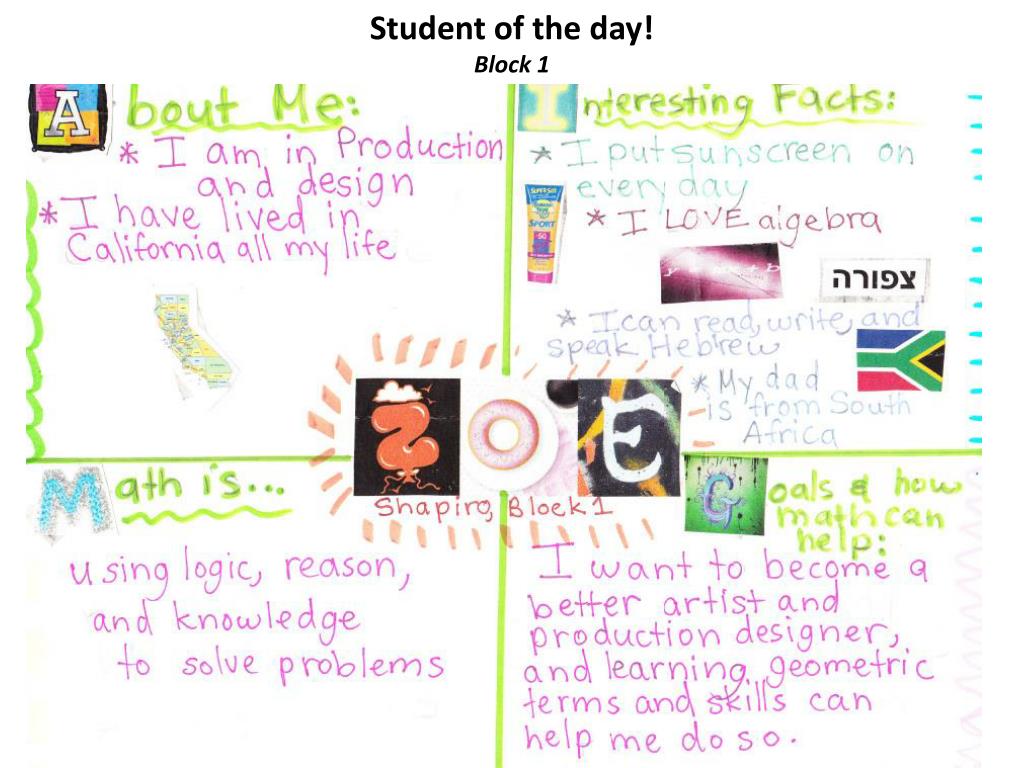 Student of the day!
Block 1
About Me:
* I am in Production
and design
* I have lived in
California all my life
Interesting Facts:
* I put sunscreen on
every day
SPORT
50
* I LOVE algebra
צפורה
* I can read, write, and
speak Hebrew
* My dad
is from South
Africa
ZOE
Shapiro, Block 1
Math is...
using logic, reason,
and knowledge
to solve problems
Goals & how
math can
help:
I want to become a
better artist and
production designer,
and learning geometric
terms and skills can
help me do so.